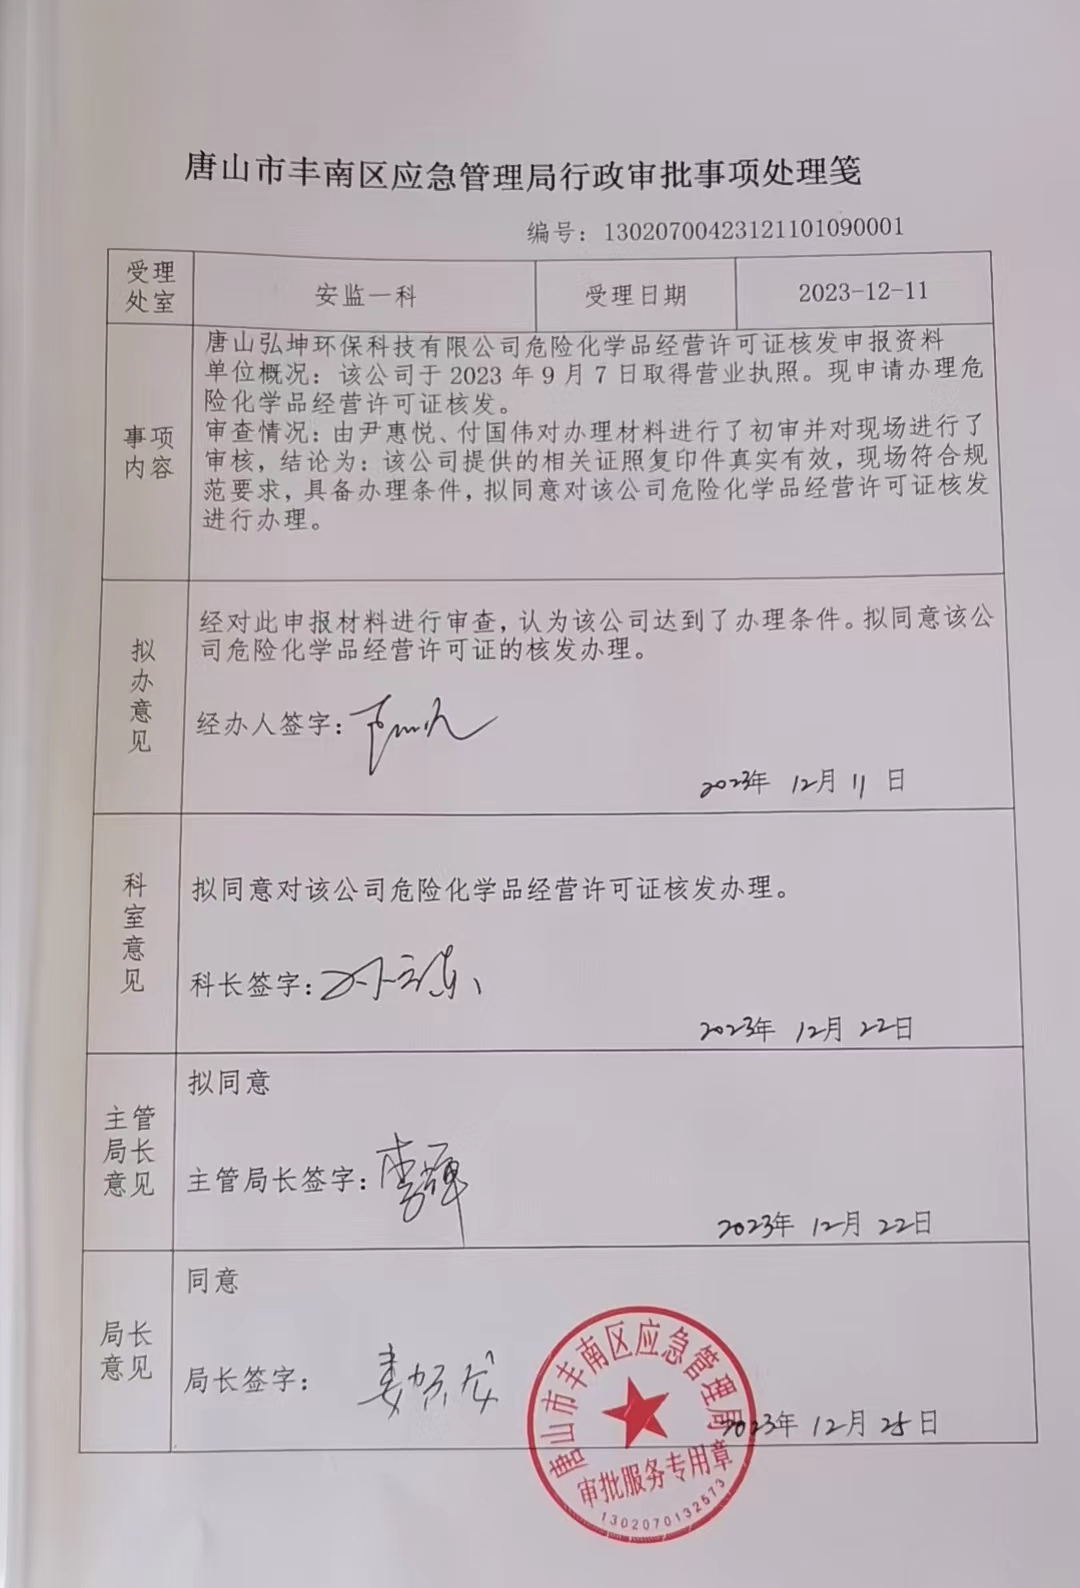 唐山市丰南区应急管理局行政审批事项处理笺
编号：13020700423121101090001
受理处室
安监一科
受理日期
2023-12-11
事项内容
唐山弘坤环保科技有限公司危险化学品经营许可证核发申报资料
单位概况：该公司于 2023 年 9 月 7 日取得营业执照。现申请办理危
险化学品经营许可证核发。
审查情况：由尹惠悦、付国伟对办理材料进行了初审并对现场进行了
审核，结论为：该公司提供的相关证照复印件真实有效，现场符合规
范要求，具备办理条件，拟同意对该公司危险化学品经营许可证核发
进行办理。
拟办意见
经对此申报材料进行审查，认为该公司达到了办理条件。拟同意该公
司危险化学品经营许可证的核发办理。
经办人签字：
2023年 12月 11 日
科室意见
拟同意对该公司危险化学品经营许可证核发办理。
科长签字：
2023年 12月 22日
主管局长意见
拟同意
主管局长签字：李辉
2023年 12月 22日
局长意见
同意
局长签字：
2023年 12月 25日
唐山市丰南区应急管理局
审批服务专用章
1302070132573